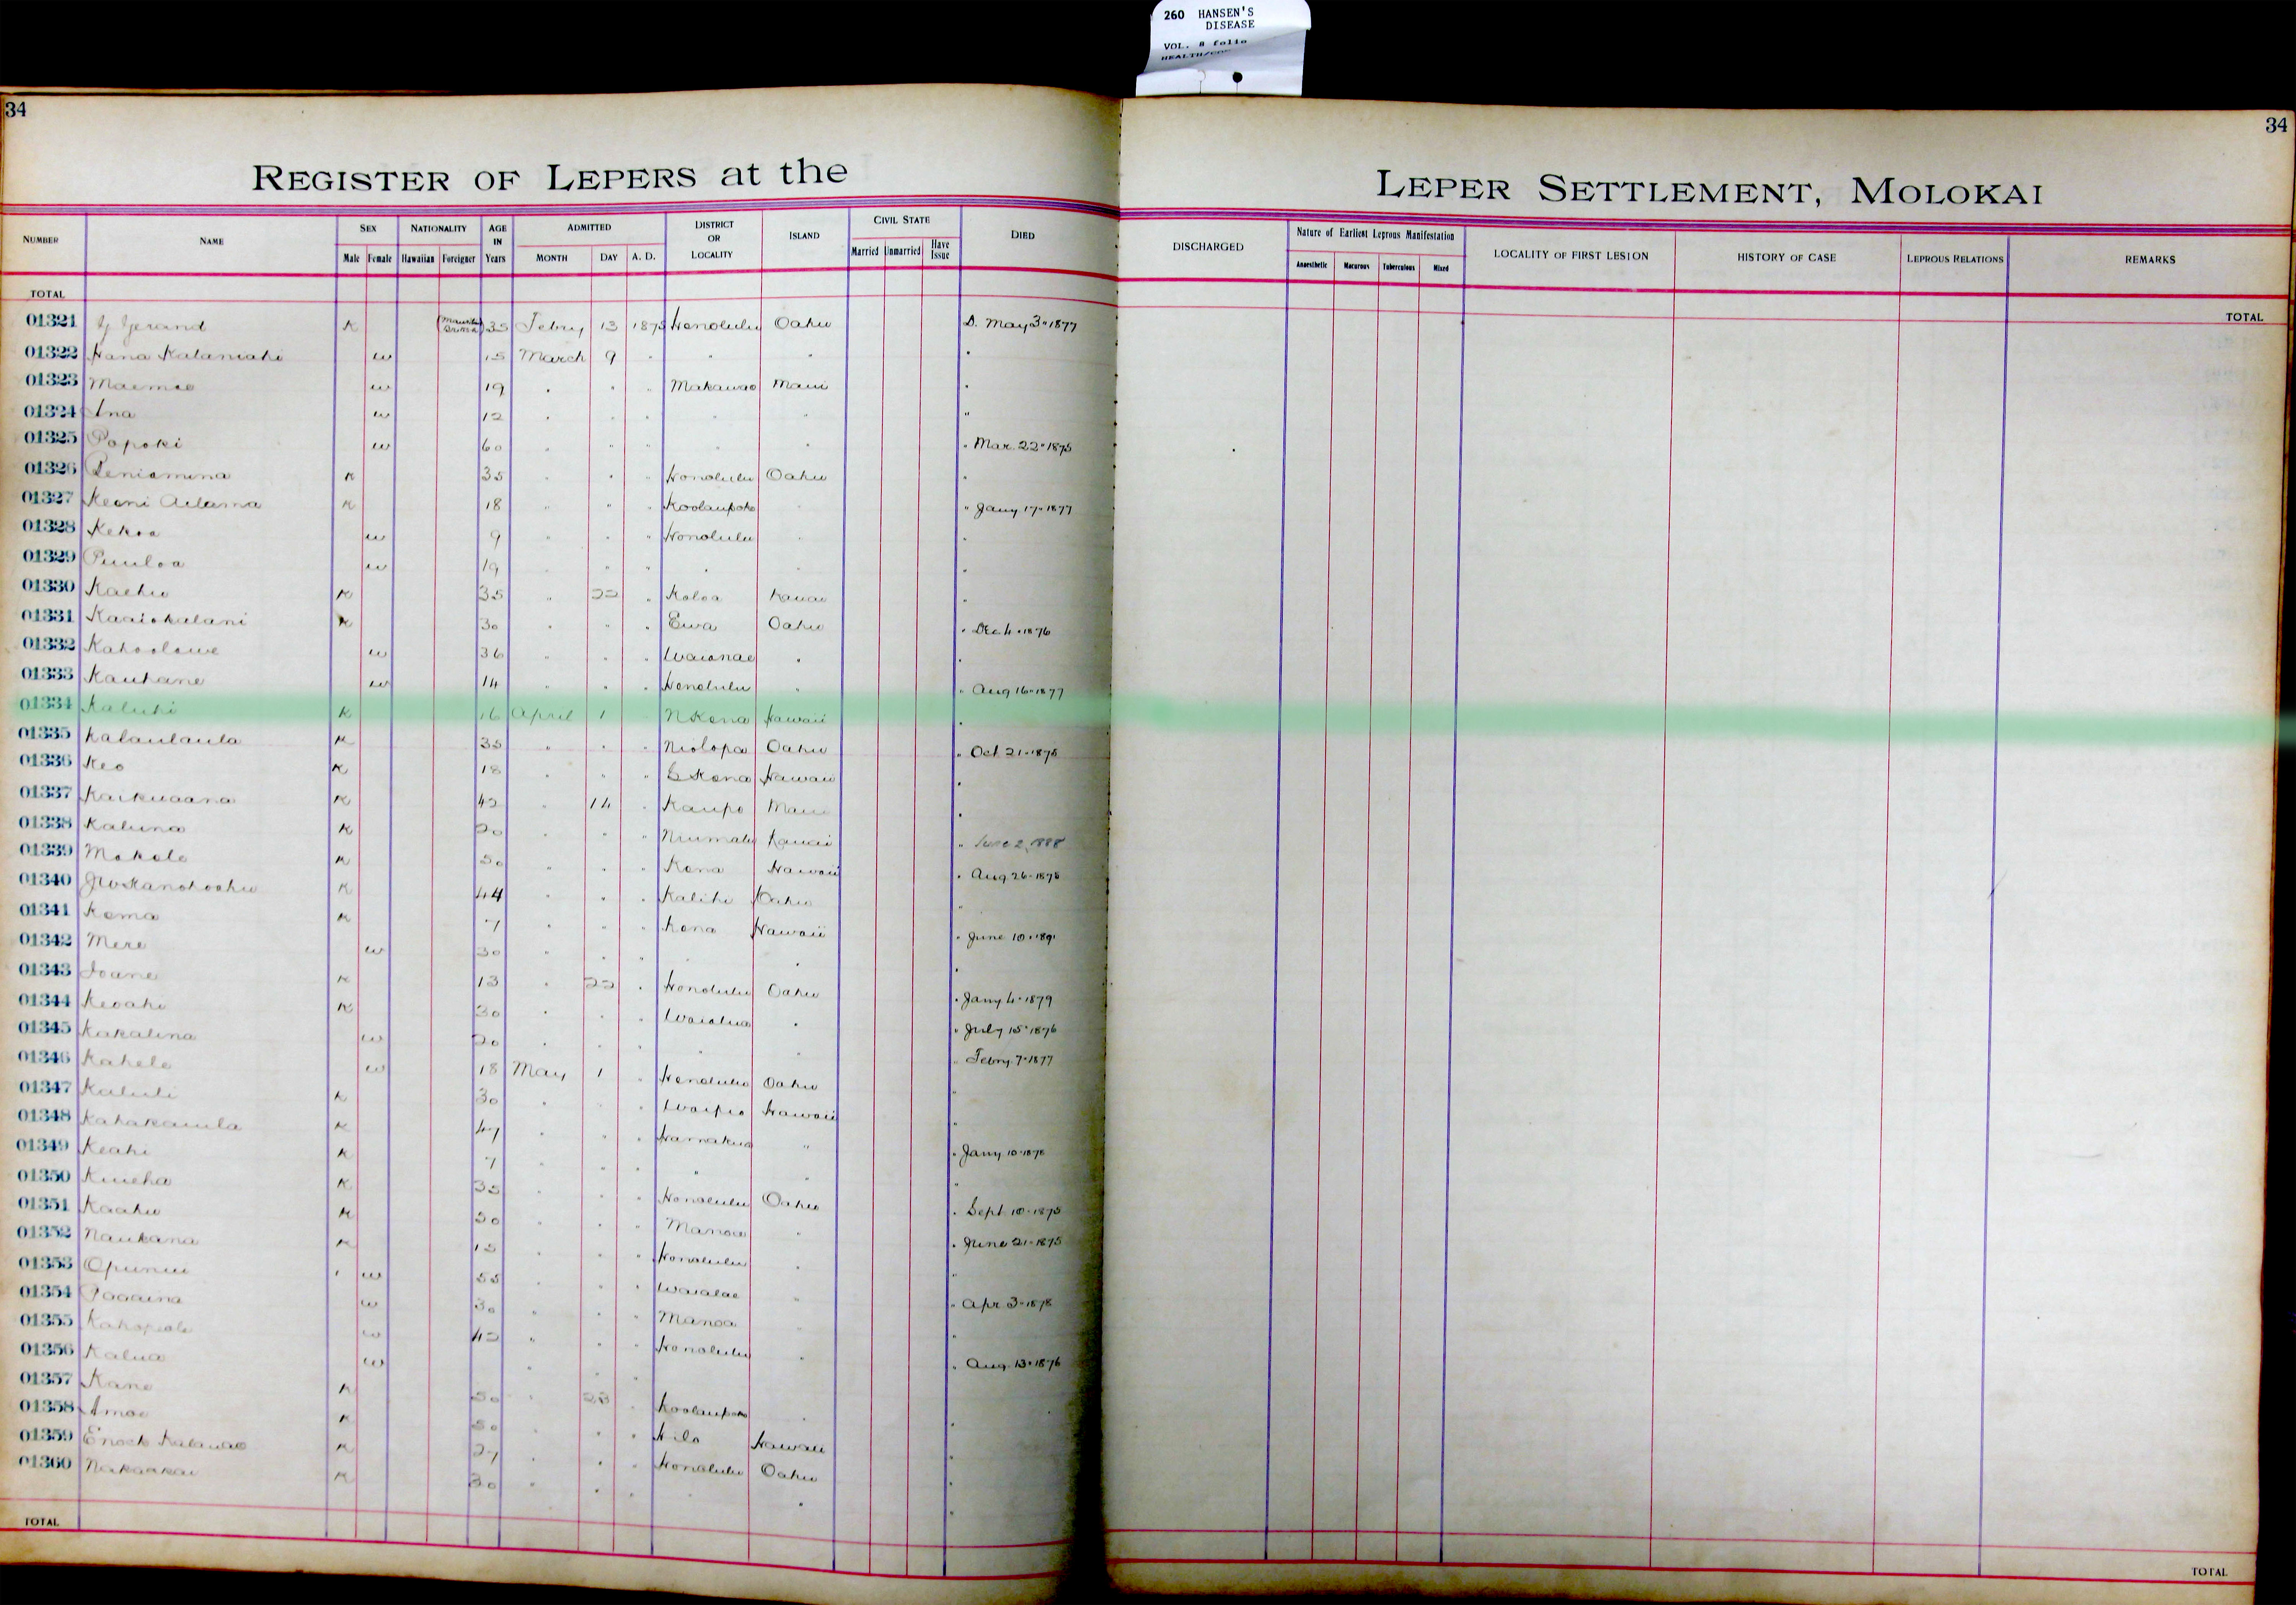 260 HANSEN'S
DISEASE
VOL. 8 folio
34
34
REGISTER OF LEPERS at the
LEPER SETTLEMENT, MOLOKAI
NUMBER NAME SEX Male Female NATIONALITY Hawaiian Foreigner AGE IN Years ADMITTED MONTH DAY A. D. DISTRICT OR LOCALITY ISLAND CIVIL STATE Married Unmarried Have Issue DIED
DISCHARGED Nature of Earliest Leprous Manifestation Anaesthetic Macurous Tuberculous Mixed LOCALITY OF FIRST LESION HISTORY OF CASE LEPROUS RELATIONS REMARKS
TOTAL
TOTAL
01321 Gerand K 35 Febry 13 1875 Honolulu Oahu D. May 3 " 1877
01322 Hana Kalaniahi w 15 March 9 " " " "
01323 Maemae w 19 " " " Makawao Maui "
01324 Ina w 12 " " " " " "
01325 Popoki w 60 " " " " " " Mar. 22 " 1875
01326 Peniamina K 35 " " " Honolulu Oahu "
01327 Keoni Adama K 18 " " " Koolaupoko " " Jany 17 " 1877
01328 Kekoa w 9 " " " Honolulu " "
01329 Puuloa w 19 " " " " " "
01330 Kaehu K 35 " 22 " Koloa Kauai "
01331 Kaaiokalani K 30 " " " Ewa Oahu " Dec 4 " 1876
01332 Kahoolawe w 36 " " " Waianae " "
01333 Kauhane w 14 " " " Honolulu " " Aug 16 " 1877
01334 Kaluhi K 16 April 1 " N Kona Hawaii "
01335 Kalaulaula K 35 " " " Niolopa Oahu " Oct 21 " 1875
01336 Keo K 18 " " " S Kona Hawaii "
01337 Kaikuaana K 42 " 14 " Kaupo Maui "
01338 Kaluna K 20 " " " Niumalu Kauai " June 2, 1888
01339 Makale K 50 " " " Kona Hawaii " Aug 26 " 1878
01340 JW Kanohoahu K 44 " " " Kalihi Oahu "
01341 Kema K 7 " " " Kona Hawaii " June 10 " 1891
01342 Mere w 30 " " " " " "
01343 Ioane K 13 " 22 " Honolulu Oahu " Jany 4 " 1879
01344 Keoahi K 30 " " " Waialua " " July 15 " 1876
01345 Kakalina w 20 " " " " " " Febry. 7 " 1877
01346 Kahele w 18 May 1 " Honolulu Oahu "
01347 Kaluli K 30 " " " Waipio Hawaii "
01348 Kahakauila K 47 " " " Hamakua " " Jany 10 " 1878
01349 Keahi K 7 " " " " " "
01350 Kuieha K 35 " " " Honolulu Oahu " Sept 10 " 1875
01351 Kaahu K 50 " " " Manoa " " June 21 " 1875
01352 Naukana K 15 " " " Honolulu " "
01353 Opunui w 55 " " " Waialae " " Apr 3 " 1878
01354 Paaaina w 30 " " " Manoa " "
01355 w 42 " " " Honolulu " " Aug. 13 " 1876
01356 Kalua w " " "
01357 Kane K 50 " 28 " Koolaupoko " "
01358 Amoe K 50 " " " Hilo Hawaii "
01359 Enoch Kalauao K 27 " " " Honolulu Oahu "
01360 Nakaakai K 30 " " " " " "
TOTAL
TOTAL